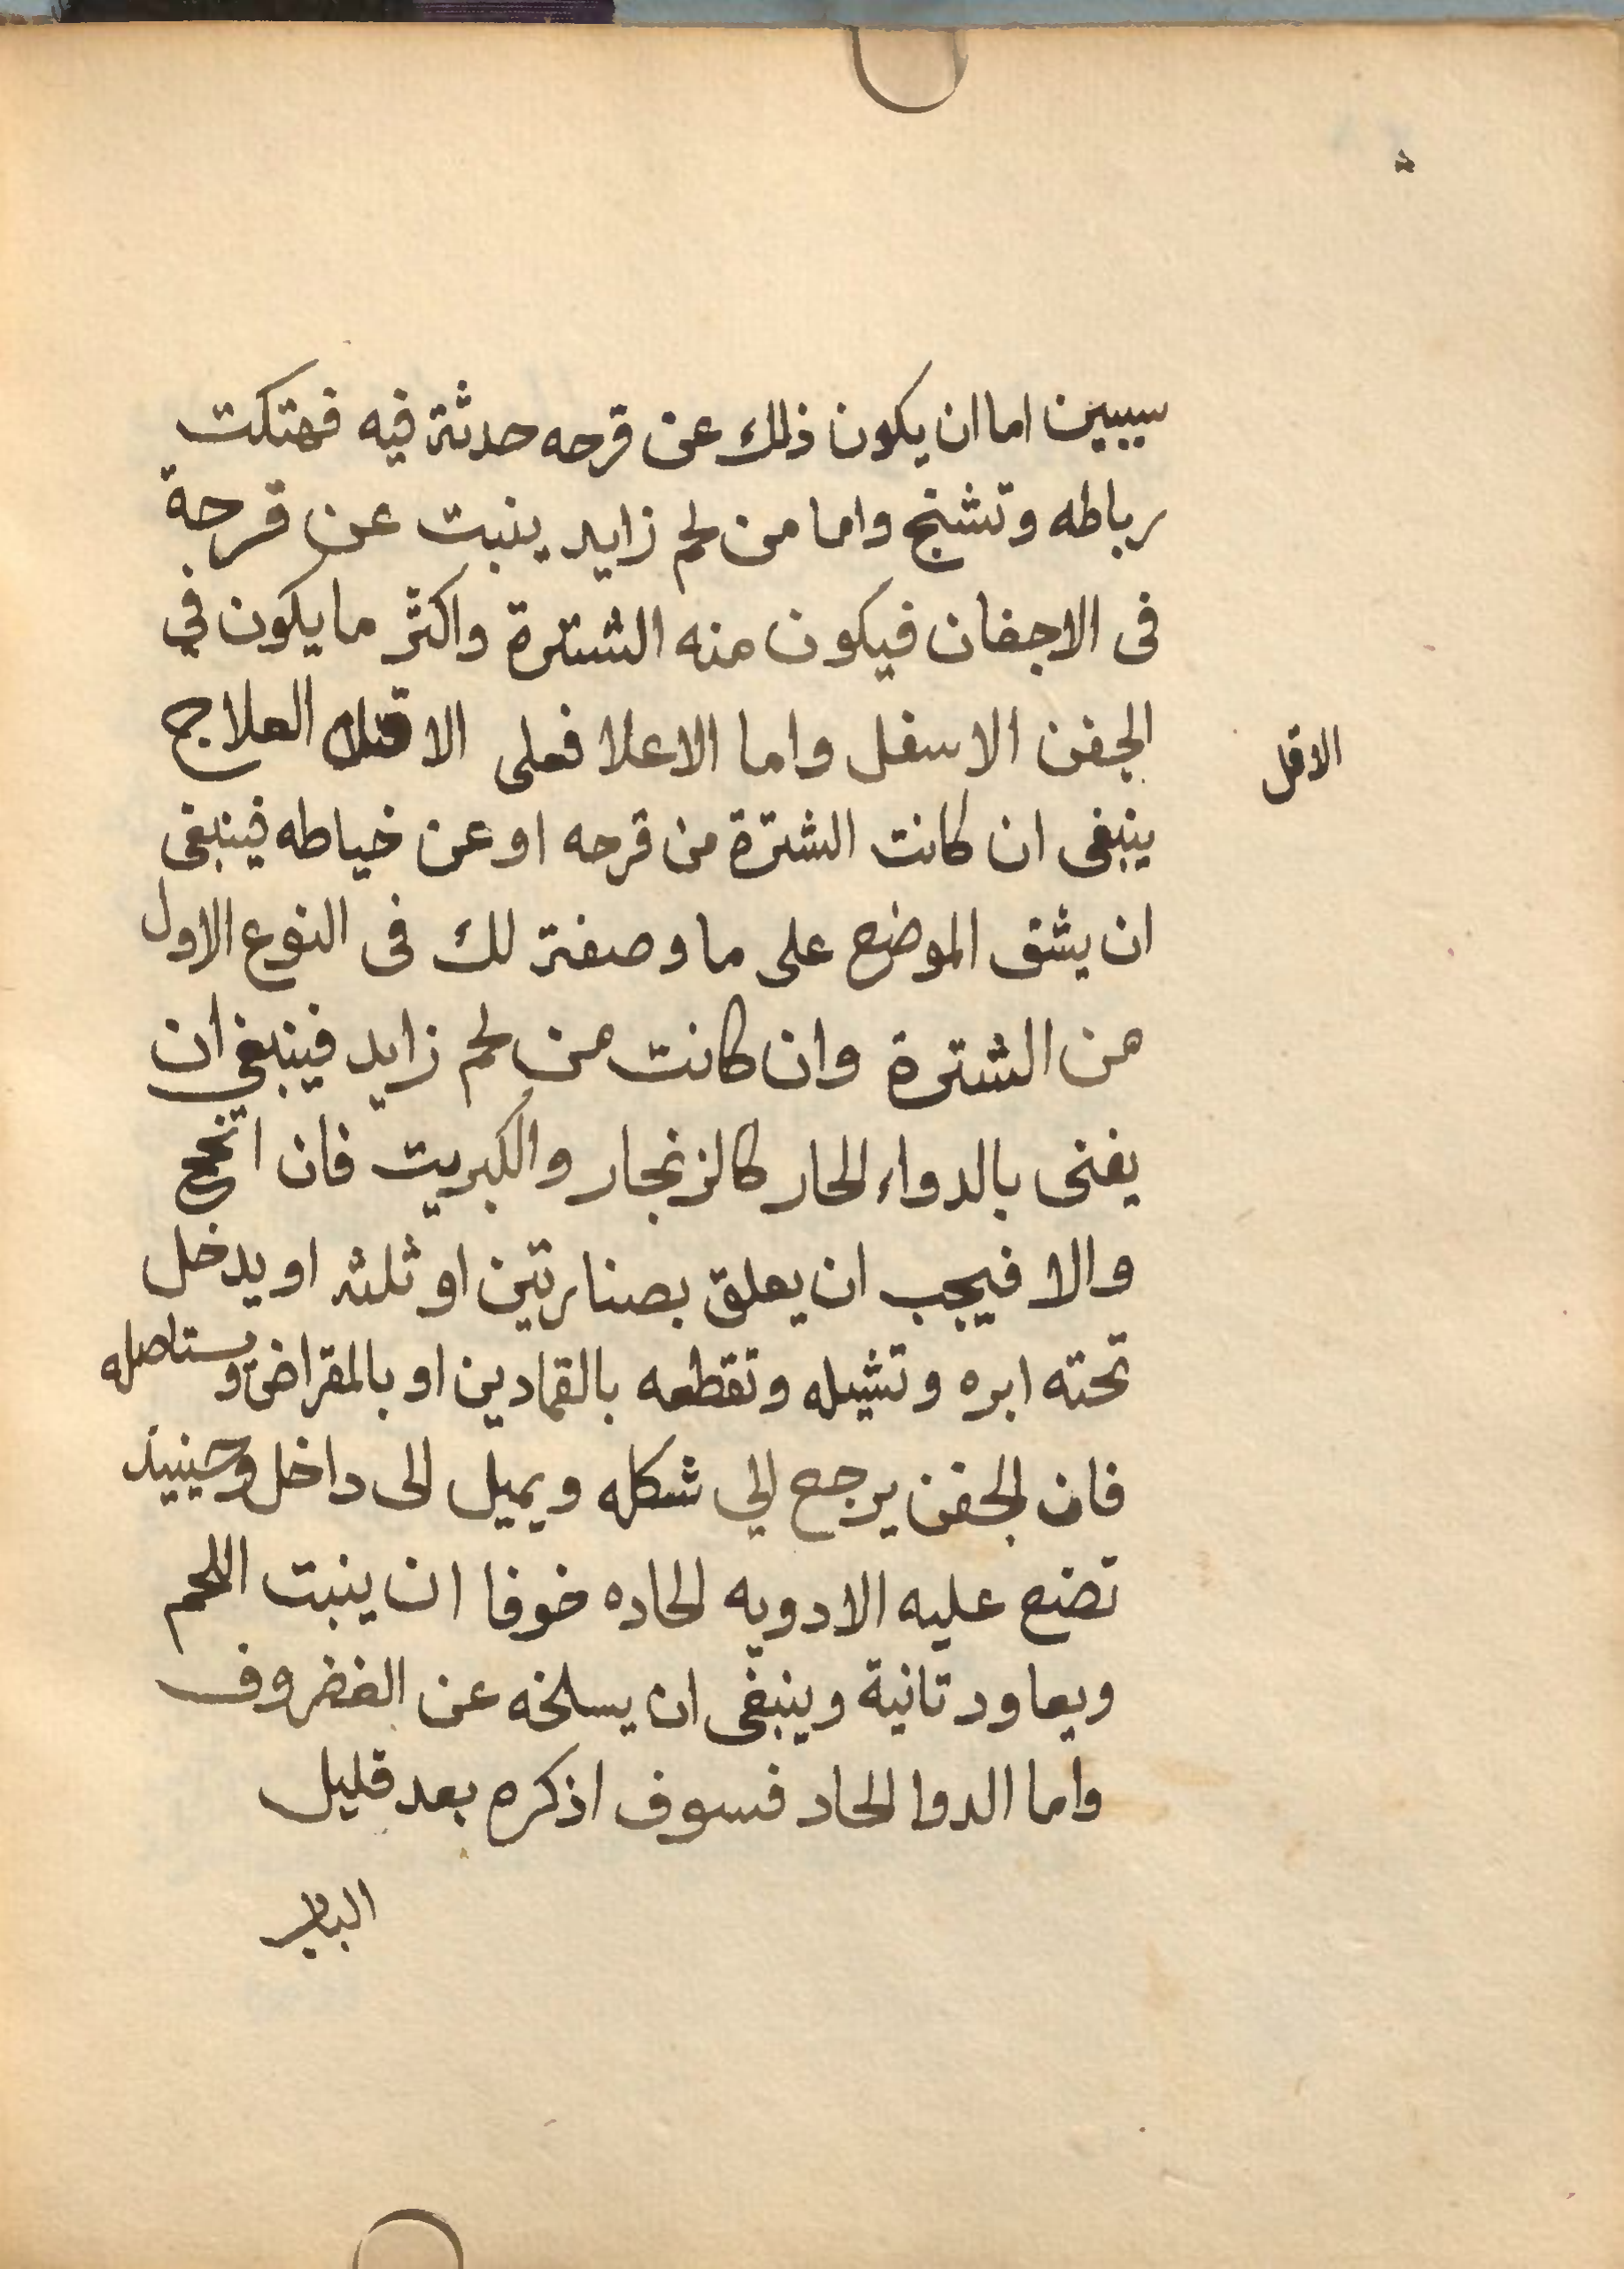 سببين اما ان يكون ذلك عن قرحه حدثة فيه فهتكت
رباطه وتشنج واما من لحم زايد ينبت عن قرحة
فى الاجفان فيكون منه الشترة واكثر ما يكون في
الجفن الاسفل واما الاعلا فعلى الاقل العلاج
الاقل
ينبغى ان كانت الشترة من قرحه او عن خياطه فينبغى
ان يشق الموضع على ما وصفتة لك فى النوع الاول
من الشترة وان كانت من لحم زايد فينبغي ان
يفنى بالدواء الحار كالزنجار والكبريت فان انجع
والا فيجب ان يعلق بصنارتين او ثلثه او يدخل
تحته ابره وتشيله وتقطعه بالقمادين او بالمقراض ويستاصله
فان الجفن يرجع الي شكله ويميل الى داخل وحينيذ
تضع عليه الادويه الحاده خوفا ان ينبت اللحم
ويعاود تانية وينبغى ان يسلخه عن الغضروف
واما الدوا الحاد فسوف اذكره بعد قليل